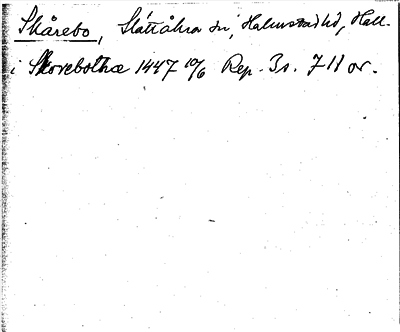 Skårebo, Slättåkra sn, Halmstad hd, Hall.
i Skorebothæ 1447 10/6 Rep. Bs. 711 or.